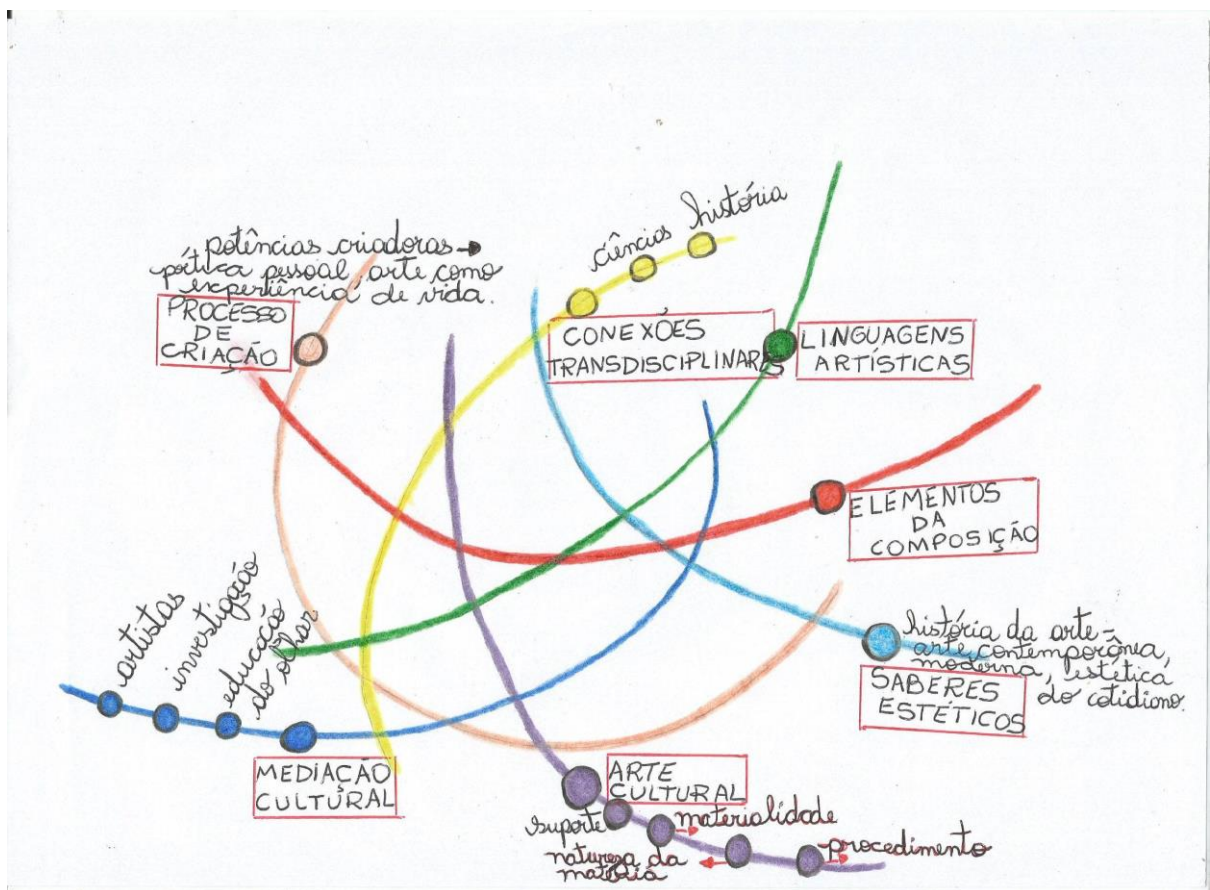 potências criadoras →
poética pessoal, arte como
experiência de vida.
PROCESSO
DE
CRIAÇÃO
ciências
história
CONEXÕES
TRANSDISCIPLINARES
LINGUAGENS
ARTÍSTICAS
ELEMENTOS
DA
COMPOSIÇÃO
história da arte -
arte contemporânea,
moderna, estética
do cotidiano.
SABERES
ESTÉTICOS
artistas
investigação
educação
do olhar
MEDIAÇÃO
CULTURAL
ARTE
CULTURAL
suporte
materialidade
natureza da
matéria
procedimento